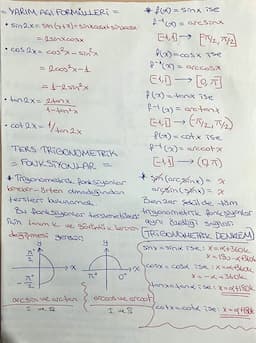 = YARIM AÇI FORMÜLLERİ =
• sin2x = sin(x+x) = sinxcosx + sinxcosx
= 2sinxcosx
• cos2x = cos²x - sin²x
= 2cos²x - 1
= 1 - 2sin²x
• tan2x = 2tanx / 1-tan²x
• cot2x = 1/tan2x
TERS TRİGONOMETRİK
= FONKSİYONLAR =
* Trigonometrik fonksiyonlar
birebir-örten olmadığından
tersleri bulunamaz.
Bu fonksiyonlar terslenebilmesi
için tanım k. ve görüntü k.
değişmesi gerekir.
y
π/2
x
-π/2
arcsin ve arctan
y
π
0°
x
arccos ve arccot
* f(x) = sinx ise
f⁻¹(x) = arcsinx
[-1,1] → [-π/2, π/2]
f(x) = cosx ise
f⁻¹(x) = arccosx
[-1,1] → [0, π]
f(x) = tanx ise
f⁻¹(x) = arctanx
→ (-π/2, π/2)
f(x) = cotx ise
f⁻¹(x) = arccotx
→ (0, π)
* sin(arcsinx) = x
arcsin(sinx) = x
Benzer şekilde tüm
trigonometrik fonksiyonlar
aynı özelliği sağlar.
TRİGONOMETRİK DENKLEM
sinx = sinα ise: x = α + 360k
x = 180 - α + 360k
cosx = cosα ise: x = α + 360k
x = -α + 360k
tanx = tanα ise: x = α + 180k
cotx = cotα ise: x = α + 180k